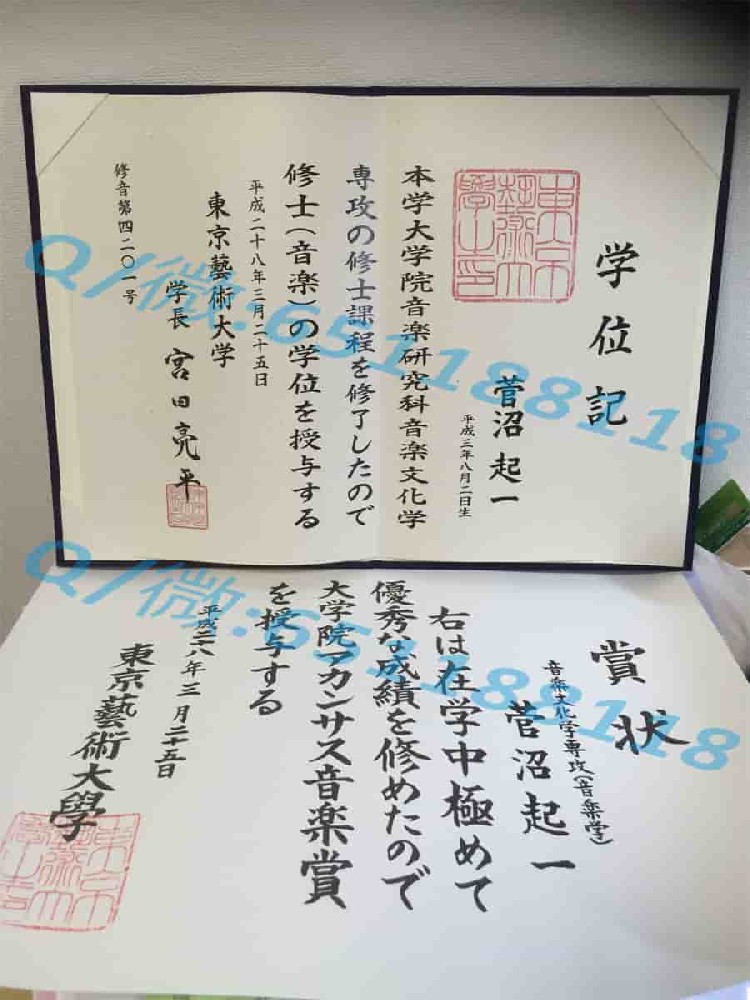 学位記
菅沼起一
平成三年八月二日生
本学大学院音楽研究科音楽文化学
専攻の修士課程を修了したので
修士（音楽）の学位を授与する
平成二十八年三月二十五日
東京藝術大学
学長 宮田亮平
修音第四二〇一号
賞状
音楽文化学専攻（音楽学）
菅沼起一
右は在学中極めて
優秀な成績を修めたので
大学院アカンサス音楽賞
を授与する
平成二八年三月二十五日
東京藝術大學
Q/微:651188118
Q/微:651188118